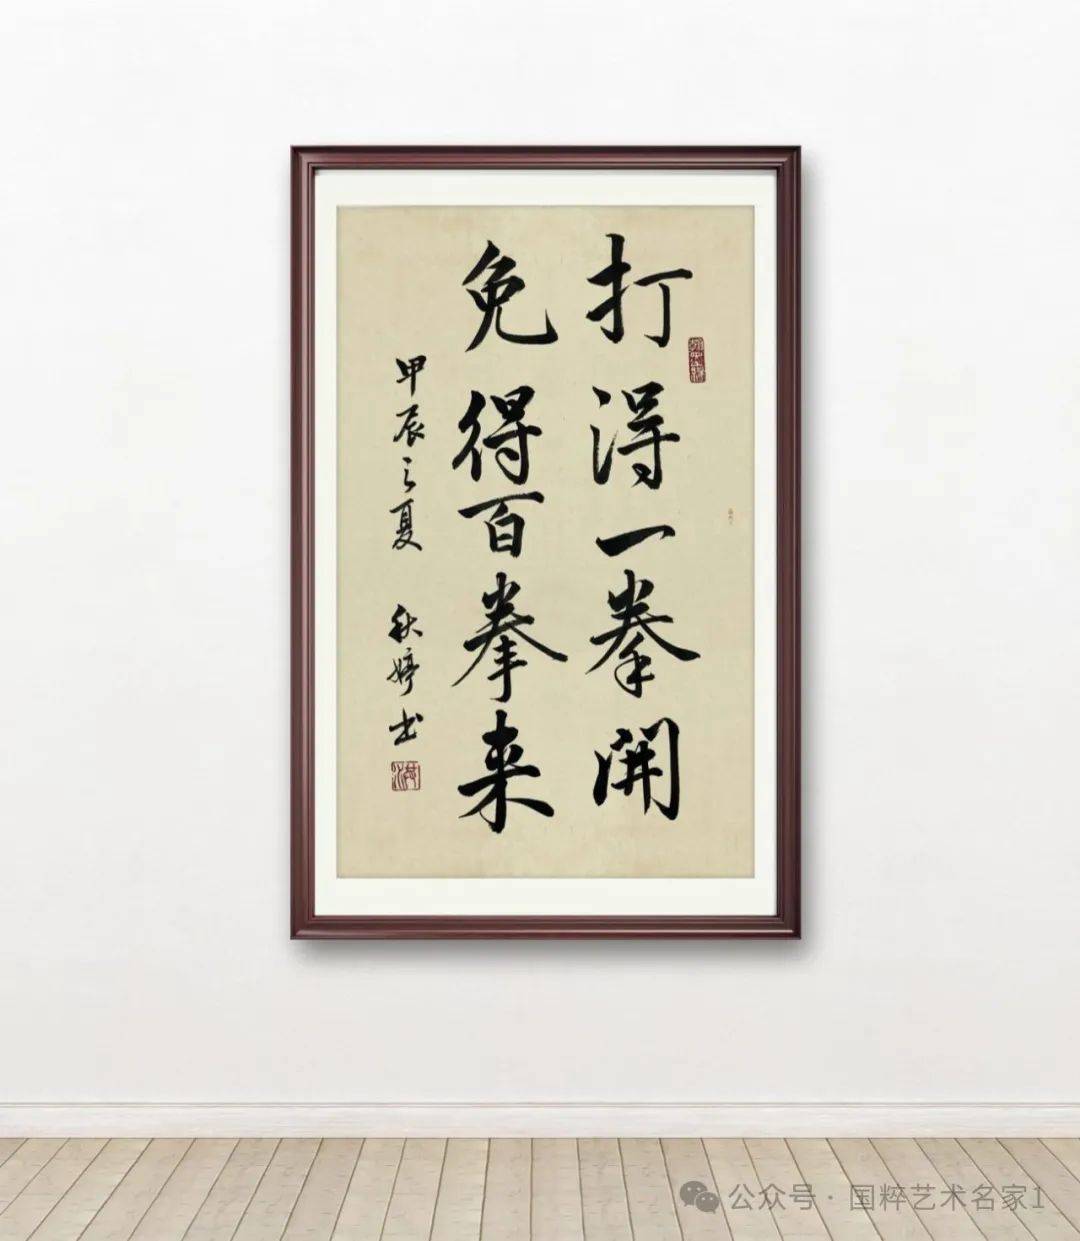 打得一拳開
免得百拳来
甲辰之夏 秋婷书
公众号·国粹艺术名家1